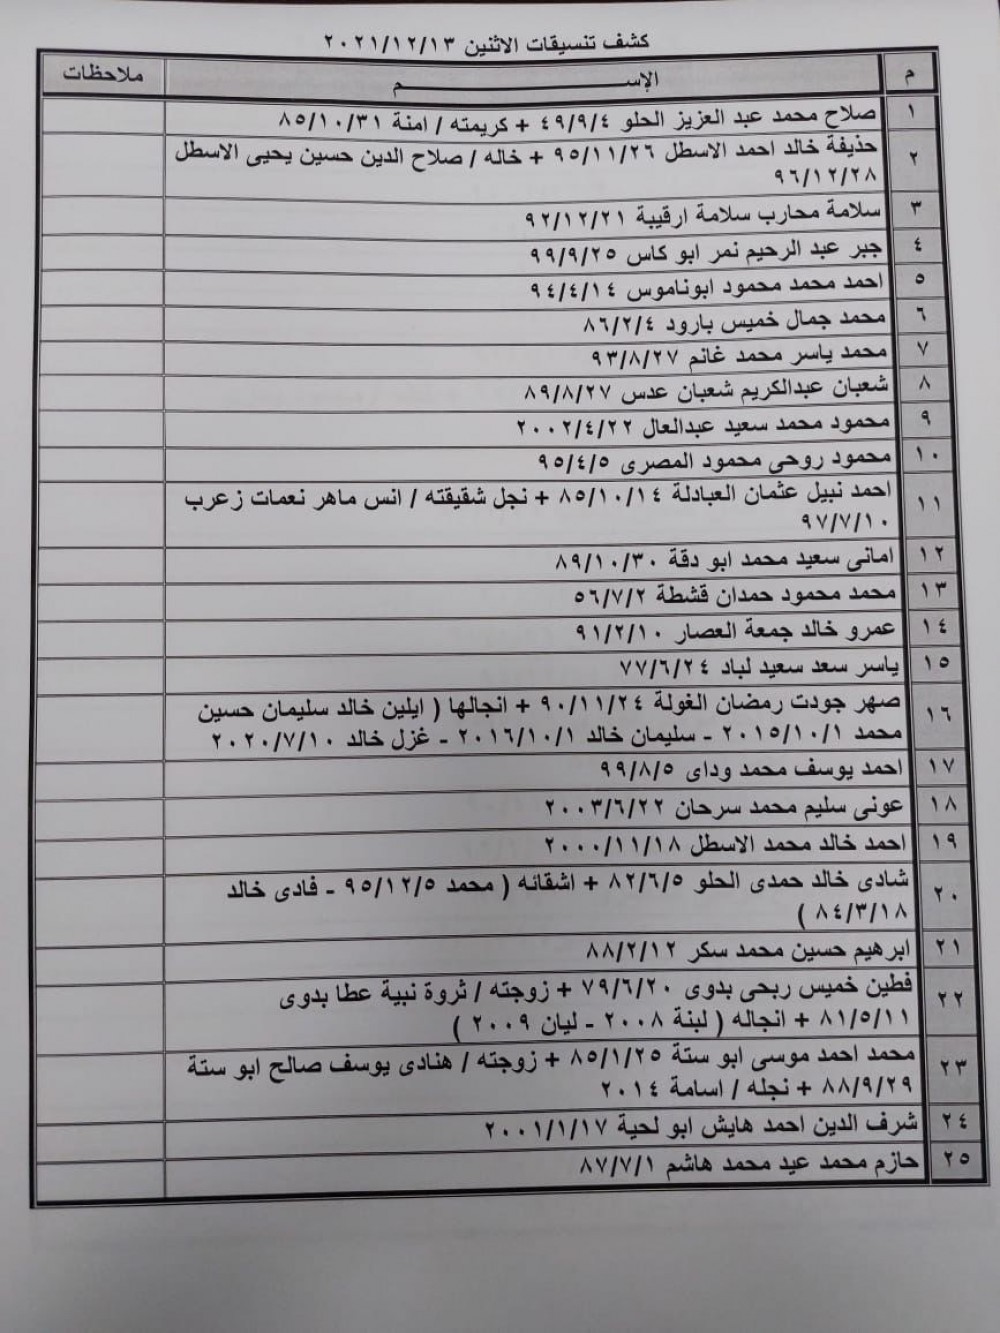 كشف تنسيقات الاثنين ٢٠٢١/١٢/١٣
م الإســـــــم ملاحظات
١ صلاح محمد عبد العزيز الحلو ٤٩/٩/٤ + كريمته / امنة ٨٥/١٠/٣١
٢ حذيفة خالد احمد الاسطل ٩٥/١١/٢٦ + خاله / صلاح الدين حسين يحيى الاسطل
٩٦/١٢/٢٨
٣ سلامة محارب سلامة ارقيبة ٩٢/١٢/٢١
٤ جبر عبد الرحيم نمر ابو كاس ٩٩/٩/٢٥
٥ احمد محمد محمود ابوناموس ٩٤/٤/١٤
٦ محمد جمال خميس بارود ٨٦/٢/٤
٧ محمد ياسر محمد غانم ٩٣/٨/٢٧
٨ شعبان عبدالكريم شعبان عدس ٨٩/٨/٢٧
٩ محمود محمد سعيد عبدالعال ٢٠٠٢/٤/٢٢
١٠ محمود روحى محمود المصرى ٩٥/٤/٥
١١ احمد نبيل عثمان العبادلة ٨٥/١٠/١٤ + نجل شقيقته / انس ماهر نعمات زعرب
٩٧/٧/١٠
١٢ امانى سعيد محمد ابو دقة ٨٩/١٠/٣٠
١٣ محمد محمود حمدان قشطة ٥٦/٧/٢
١٤ عمرو خالد جمعة العصار ٩١/٢/١٠
١٥ ياسر سعد سعيد لباد ٧٧/٦/٢٤
١٦ صهر جودت رمضان الغولة ٩٠/١١/٢٤ + انجالها ( ايلين خالد سليمان حسين
محمد ٢٠١٥/١٠/١ - سليمان خالد ٢٠١٦/١٠/١ - غزل خالد ٢٠٢٠/٧/١٠
١٧ احمد يوسف محمد وداى ٩٩/٨/٥
١٨ عونى سليم محمد سرحان ٢٠٠٣/٦/٢٢
١٩ احمد خالد محمد الاسطل ٢٠٠٠/١١/١٨
٢٠ شادى خالد حمدى الحلو ٨٢/٦/٥ + اشقائه ( محمد ٩٥/١٢/٥ - فادى خالد
٨٤/٣/١٨ )
٢١ ابرهيم حسين محمد سكر ٨٨/٢/١٢
٢٢ فطين خميس ربحى بدوى ٧٩/٦/٢٠ + زوجته / ثروة نبية عطا بدوى
٨١/٥/١١ + انجاله ( لبنة ٢٠٠٨ - ليان ٢٠٠٩ )
٢٣ محمد احمد موسى ابو ستة ٨٥/١/٢٥ + زوجته / هنادى يوسف صالح ابو ستة
٨٨/٩/٢٩ + نجله / اسامة ٢٠١٤
٢٤ شرف الدين احمد هايش ابو لحية ٢٠٠١/١/١٧
٢٥ حازم محمد عيد محمد هاشم ٨٧/٧/١